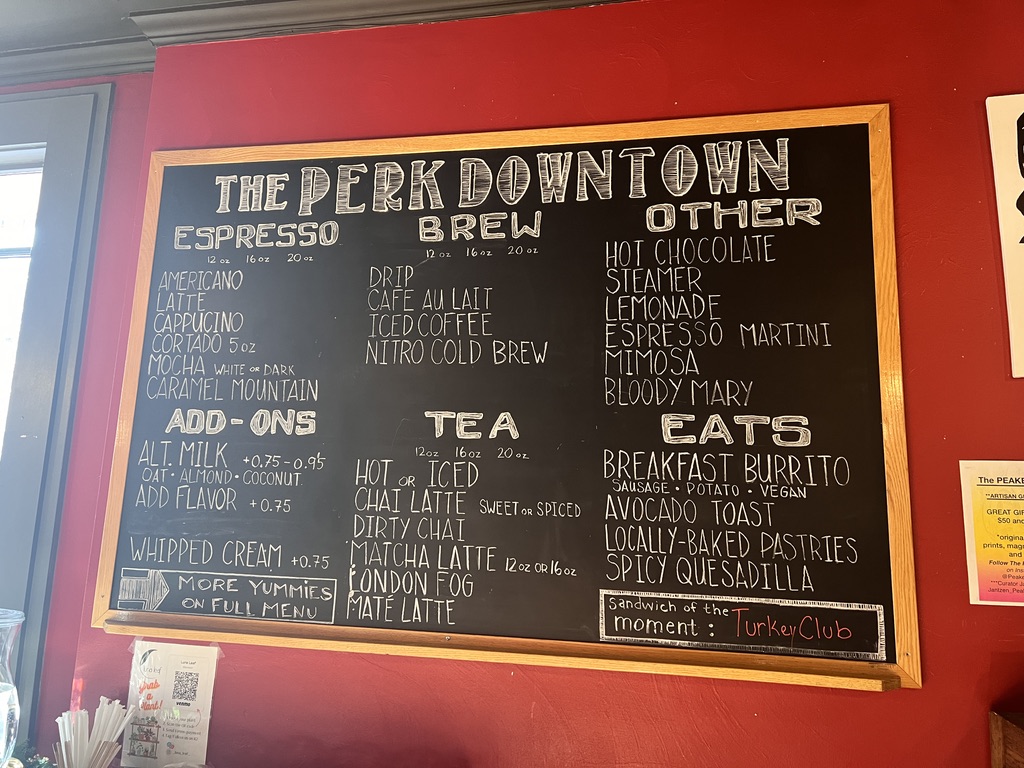 THE PERK DOWNTOWN
ESPRESSO
12 oz 16 oz 20 oz
AMERICANO
LATTE
CAPPUCINO
CORTADO 5 oz
MOCHA WHITE OR DARK
CARAMEL MOUNTAIN
ADD-ONS
ALT. MILK +0.75-0.95
OAT • ALMOND • COCONUT
ADD FLAVOR +0.75
WHIPPED CREAM +0.75
MORE YUMMIES
ON FULL MENU
BREW
12 oz 16 oz 20 oz
DRIP
CAFE AU LAIT
ICED COFFEE
NITRO COLD BREW
TEA
12 oz 16 oz 20 oz
HOT OR ICED
CHAI LATTE SWEET OR SPICED
DIRTY CHAI
MATCHA LATTE 12 oz OR 16 oz
LONDON FOG
MATÉ LATTE
OTHER
HOT CHOCOLATE
STEAMER
LEMONADE
ESPRESSO MARTINI
MIMOSA
BLOODY MARY
EATS
BREAKFAST BURRITO
SAUSAGE • POTATO • VEGAN
AVOCADO TOAST
LOCALLY-BAKED PASTRIES
SPICY QUESADILLA
Sandwich of the
moment : Turkey Club
The PEAKE
**ARTISAN G
GREAT GIF
$50 and
*origina
prints, mag
and
Follow The
on Ins
@Peake
***Curator Ja
Jantzen_Pea
Grab
a
Plant!
venmo